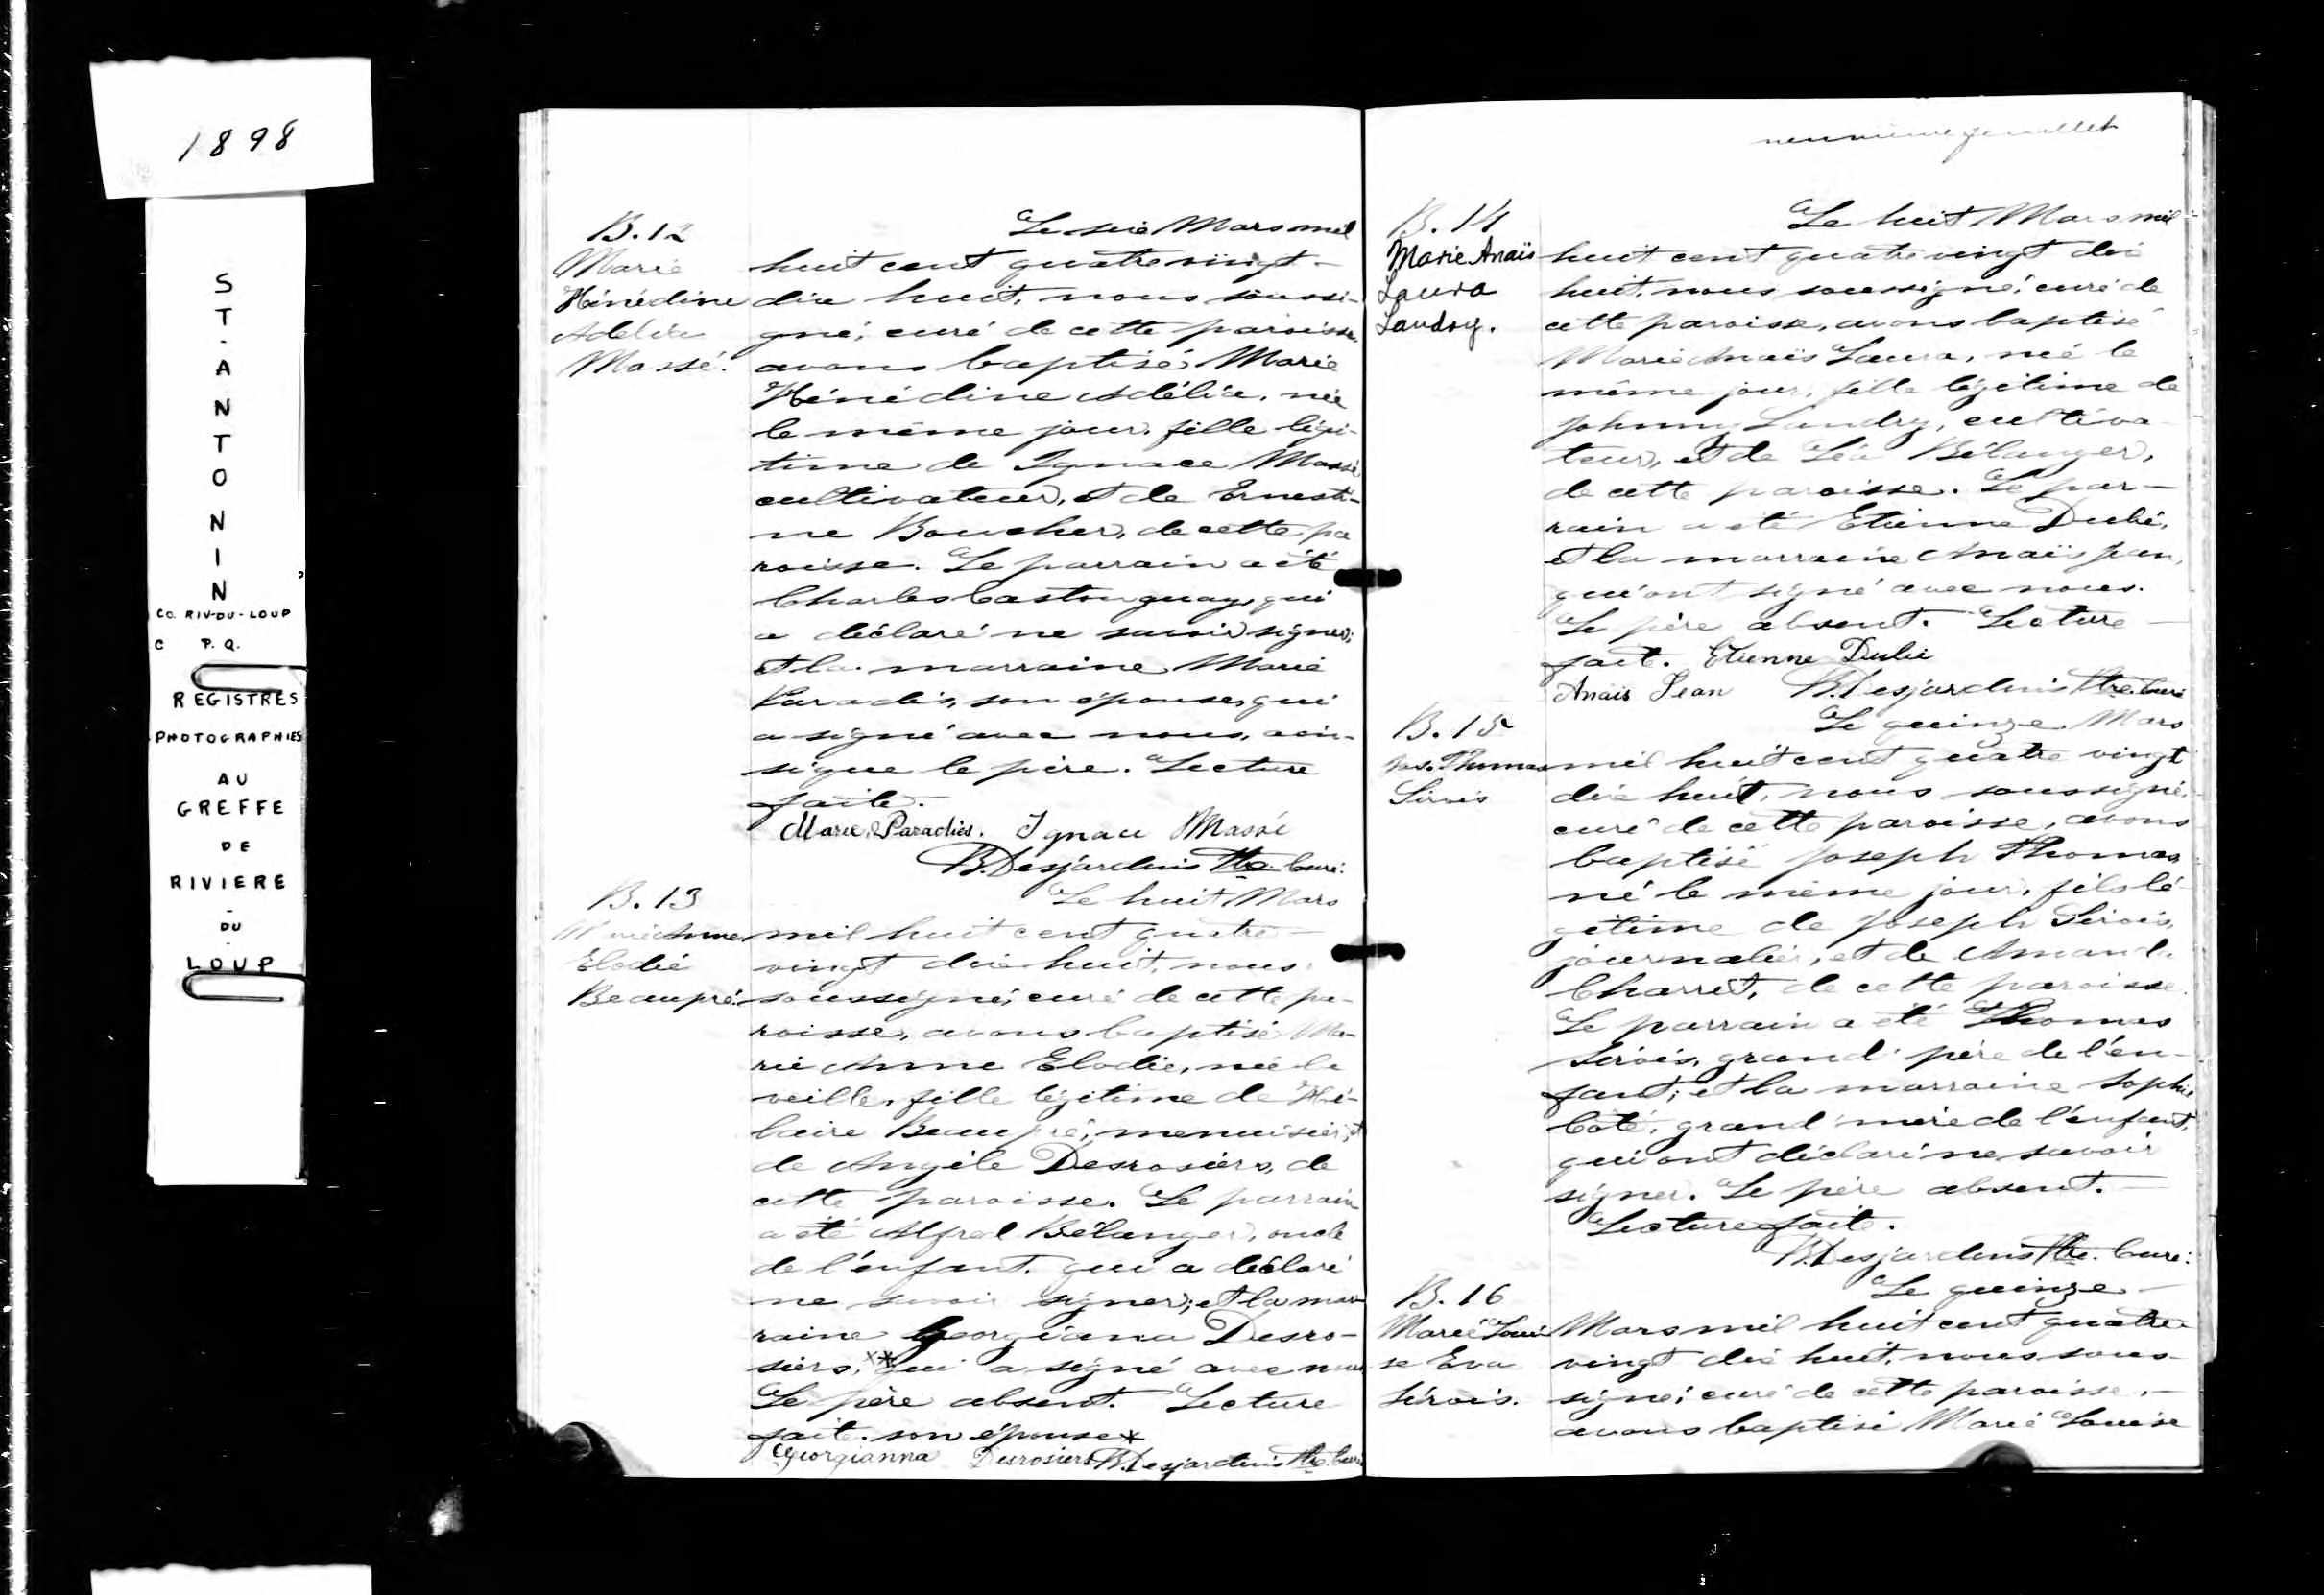 1898
ST. ANTONIN
CO. RIV-DU-LOUP
C P. Q.
REGISTRES
PHOTOGRAPHIES
AU
GREFFE
DE
RIVIERE
-
DU
-
LOUP
B.12
Marie
Hénédine
Adélia
Massé.
Le six Mars mil
huit cent quatre vingt-
dix huit, nous soussi-
gné, curé de cette paroisse,
avons baptisé Marie
Hénédine Adélia, née
le même jour, fille légi-
time de Ignace Massé
cultivateur, et de Ernesti-
ne Boucher, de cette pa
roisse. Le parrain a été
Charles Castonguay, qui
a déclaré ne savoir signer;
et la marraine Marie
Paradis, son épouse, qui
a signé avec nous, ain-
si que le père. Lecture
faite.
Marie Paradies. Ignace Massé
B. Desjardins Ptre. Curé.
B.13
Marie Anne
Elodie
Beaupré.
Le huit Mars
mil huit cent quatre-
vingt dix huit, nous
soussigné, curé de cette pa-
roisse, avons baptisé Ma-
rie Anne Elodie, née la
veille, fille légitime de Hi-
laire Beaupré, menuisier, et
de Angèle Desrosiers, de
cette paroisse. Le parrain
a été Alfred Bélanger, oncle
de l'enfant, qui a déclaré
ne savoir signer; et la mar-
raine Georgianna Desro-
siers, ** qui a signé avec nous
Le père absent. Lecture
fait. son épouse *
Georgianna Desrosiers B. Desjardins Ptre. Curé
neuvième feuillet
B.14
Marie Anaïs
Laura
Landry.
Le huit Mars mil
huit cent quatre vingt dix
huit, nous soussigné, curé de
cette paroisse, avons baptisé
Marie Anaïs Laura, né le
même jour, fille légitime de
Johnny Landry, cultiva-
teur, et de Léa Bélanger,
de cette paroisse. Le par-
rain a été Etienne Dubé,
et la marraine Anaïs Jean,
qui ont signé avec nous.
Le père absent. Lecture
fait. Etienne Dubé
Anaïs Jean B. Desjardins Ptre. Curé
B.15
Jos. Thomas
Sirois
Le quinze Mars
mil huit cent quatre vingt
dix huit, nous soussigné,
curé de cette paroisse, avons
baptisé Joseph Thomas
né le même jour, fils lé-
gitime de Joseph Sirois,
journalier, et de Amand.
Charret, de cette paroisse.
Le parrain a été Thomas
Sirois, grand' père de l'en-
fant; et la marraine Sophie
Coté, grand' mère de l'enfant,
qui ont déclaré ne savoir
signer. Le père absent.-
Lecture fait.
B. Desjardins Ptre. Curé.
B.16
Marie Loui
se Eva
Sirois.
Le quinze-
Mars mil huit cent quatre
vingt dix huit, nous sous-
signé, curé de cette paroisse,-
avons baptisé Marie Louise